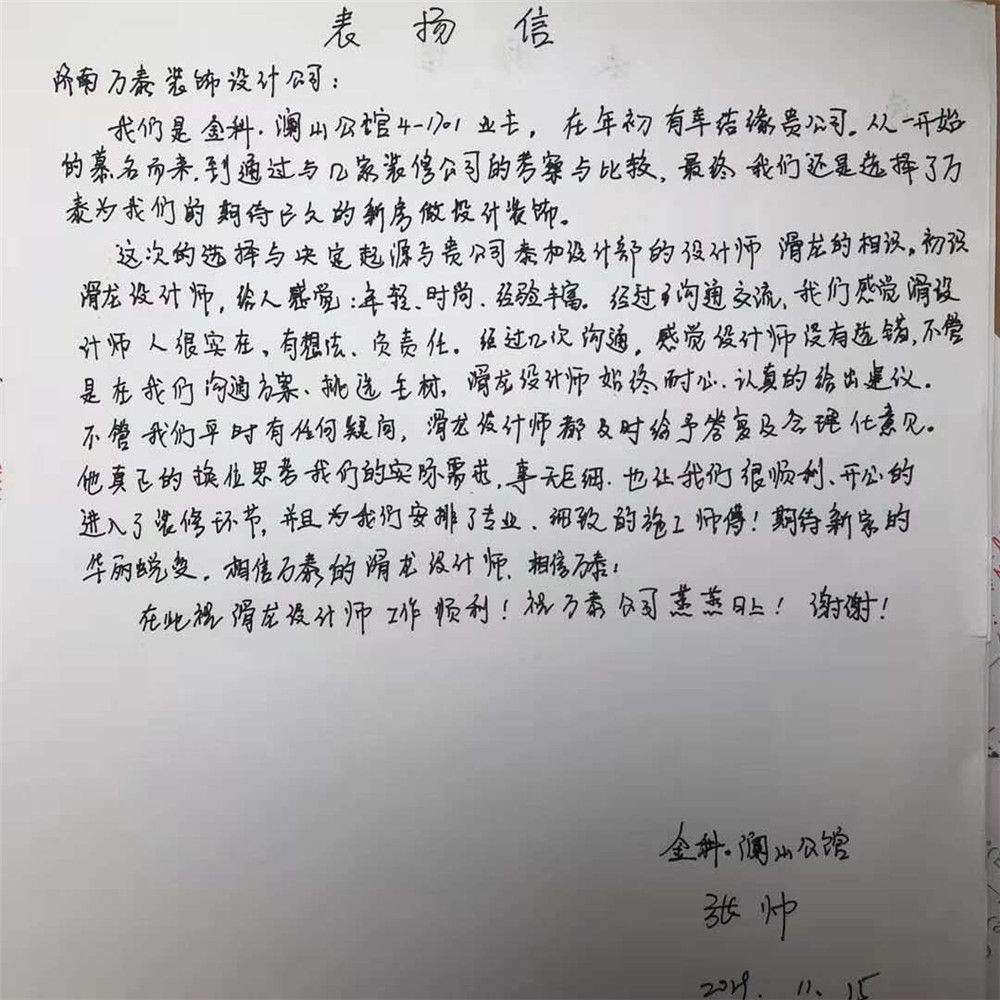 表扬信
济南万泰装饰设计公司：
我们是金科·澜山公馆4-1701业主，在年初有幸结缘贵公司。从一开始
的慕名而来，到通过与几家装修公司的考察与比较，最终我们还是选择了万
泰为我们的期待已久的新房做设计装饰。
这次的选择与决定起源与贵公司泰和设计部的设计师 滑龙的相识。初识
滑龙设计师，给人感觉：年轻、时尚、经验丰富。经过了沟通交流，我们感觉滑设
计师人很实在，有想法、负责任。经过几次沟通，感觉设计师没有选错，不管
是在我们沟通方案、挑选主材，滑龙设计师始终耐心、认真的给出建议。
不管我们平时有任何疑问，滑龙设计师都及时给予答复及合理化意见。
他真正的换位思考我们的实际需求，事无巨细，也让我们很顺利、开心的
进入了装修环节，并且为我们安排了专业、细致的施工师傅！期待新家的
华丽蜕变，相信万泰的滑龙设计师，相信万泰！
在此祝滑龙设计师工作顺利！祝万泰公司蒸蒸日上！谢谢！
金科·澜山公馆
张帅
2019. 11. 15